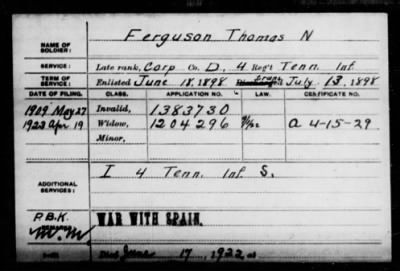 Ferguson Thomas N
NAME OF SOLDIER:
SERVICE: Late rank, Corp Co. D, 4 Reg't Tenn. Inf
TERM OF SERVICE: Enlisted June 18, 1898 Trans July 13, 1898
DATE OF FILING. CLASS. APPLICATION NO. LAW. CERTIFICATE NO.
1909 May 27 Invalid, 1383730
1922 Apr 19 Widow, 1204296 A 4-15-29
Minor,
ADDITIONAL SERVICES: I 4 Tenn. Inf S.
P.B.K. WAR WITH SPAIN.
M.M.
Died June 17, 1922, at